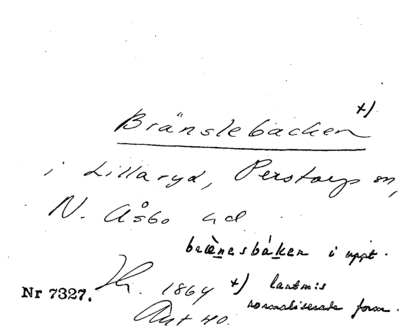 Bränslebacken +)
i Lillaryd, Perstorps sn,
N. Åsbo hd
brænesbáken i uppt.
Th. 1864 +) lantm:s
Nr 7327. normaliserade form.
Ant 40.